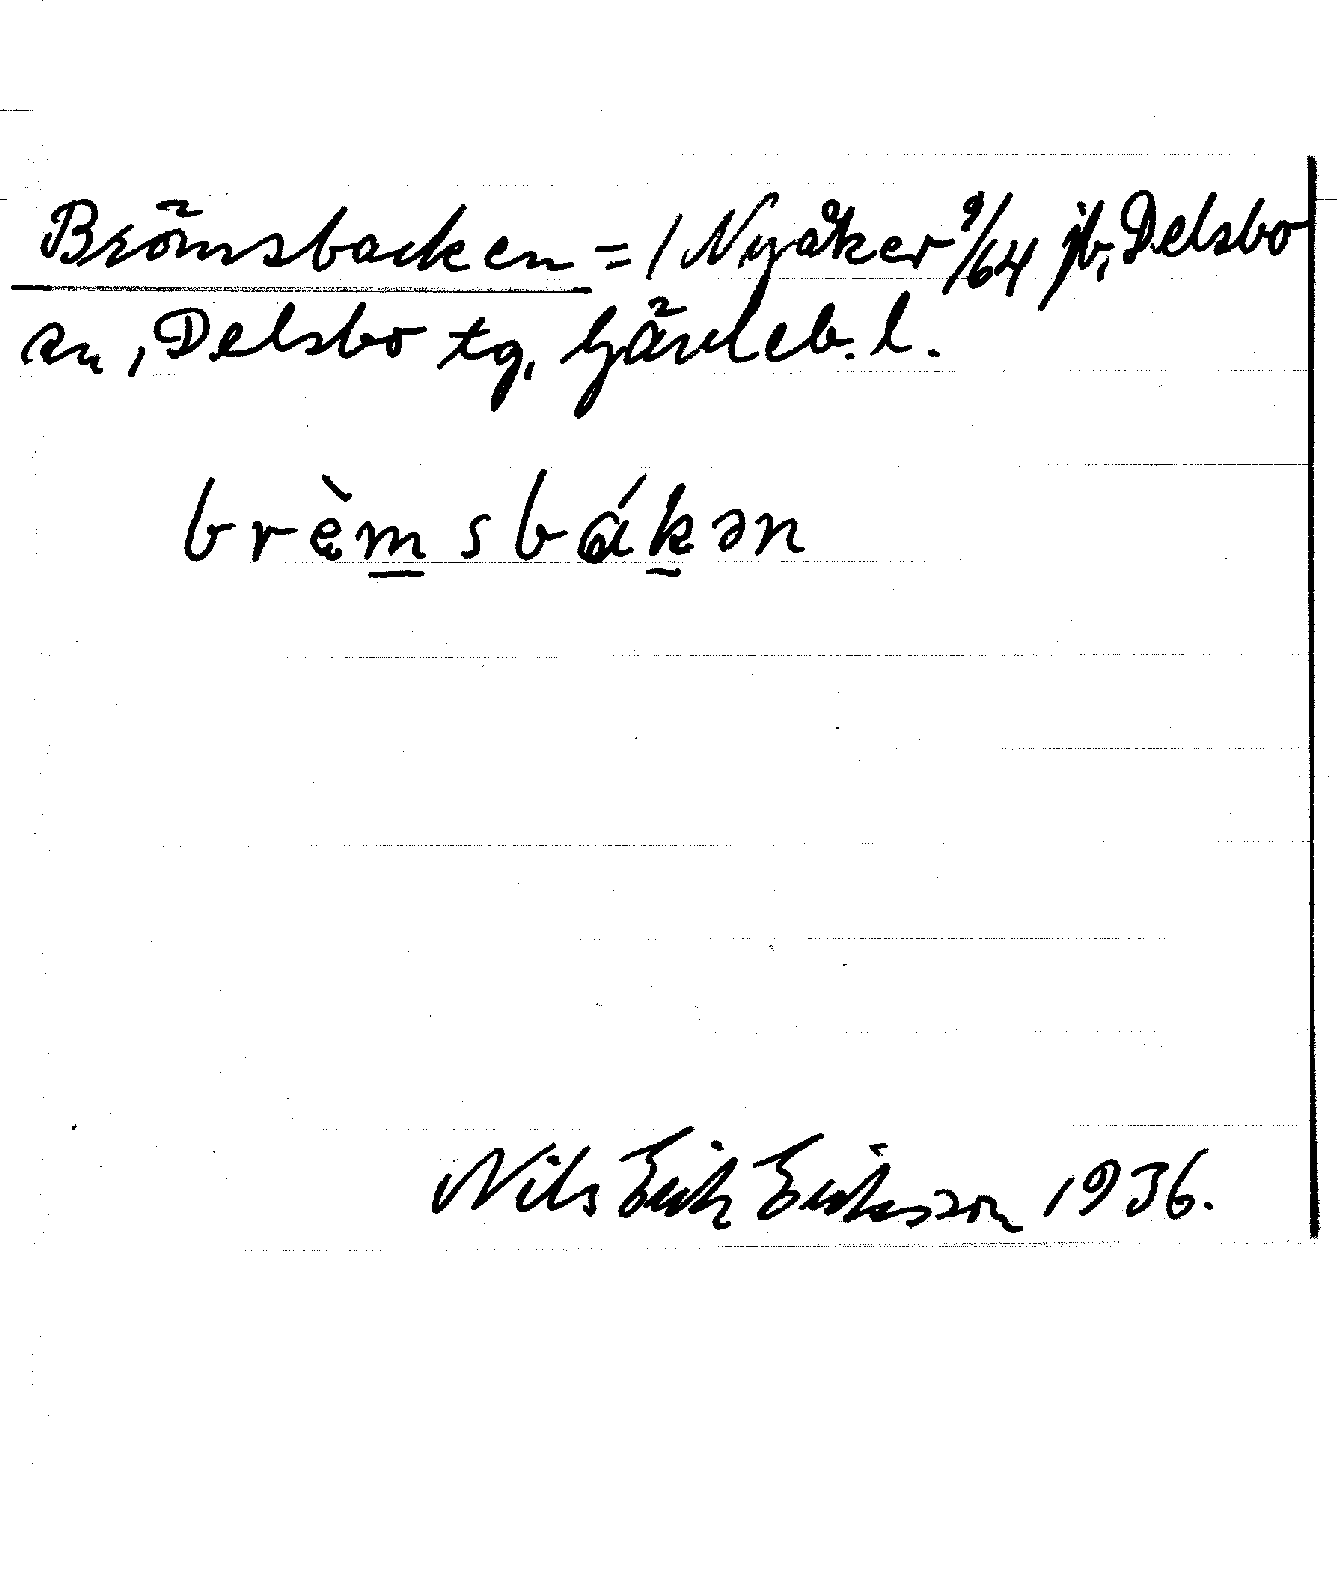 Brömsbacken = 1 Nyåker 9/64 jb, Delsbo
sn, Delsbo tg, Gävleb. l.
brę̀m̲sbák̲ən
Nils Erik Eriksson 1936.